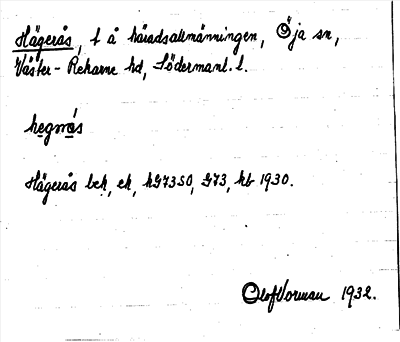 Hägerås, t å häradsallmänningen, Öja sn,
Väster-Rekarne hd, Södermanl. l.
hegrås
Hägerås bek, ek, hG73SO, G73, hb 1930.
Olof Vorman 1932.